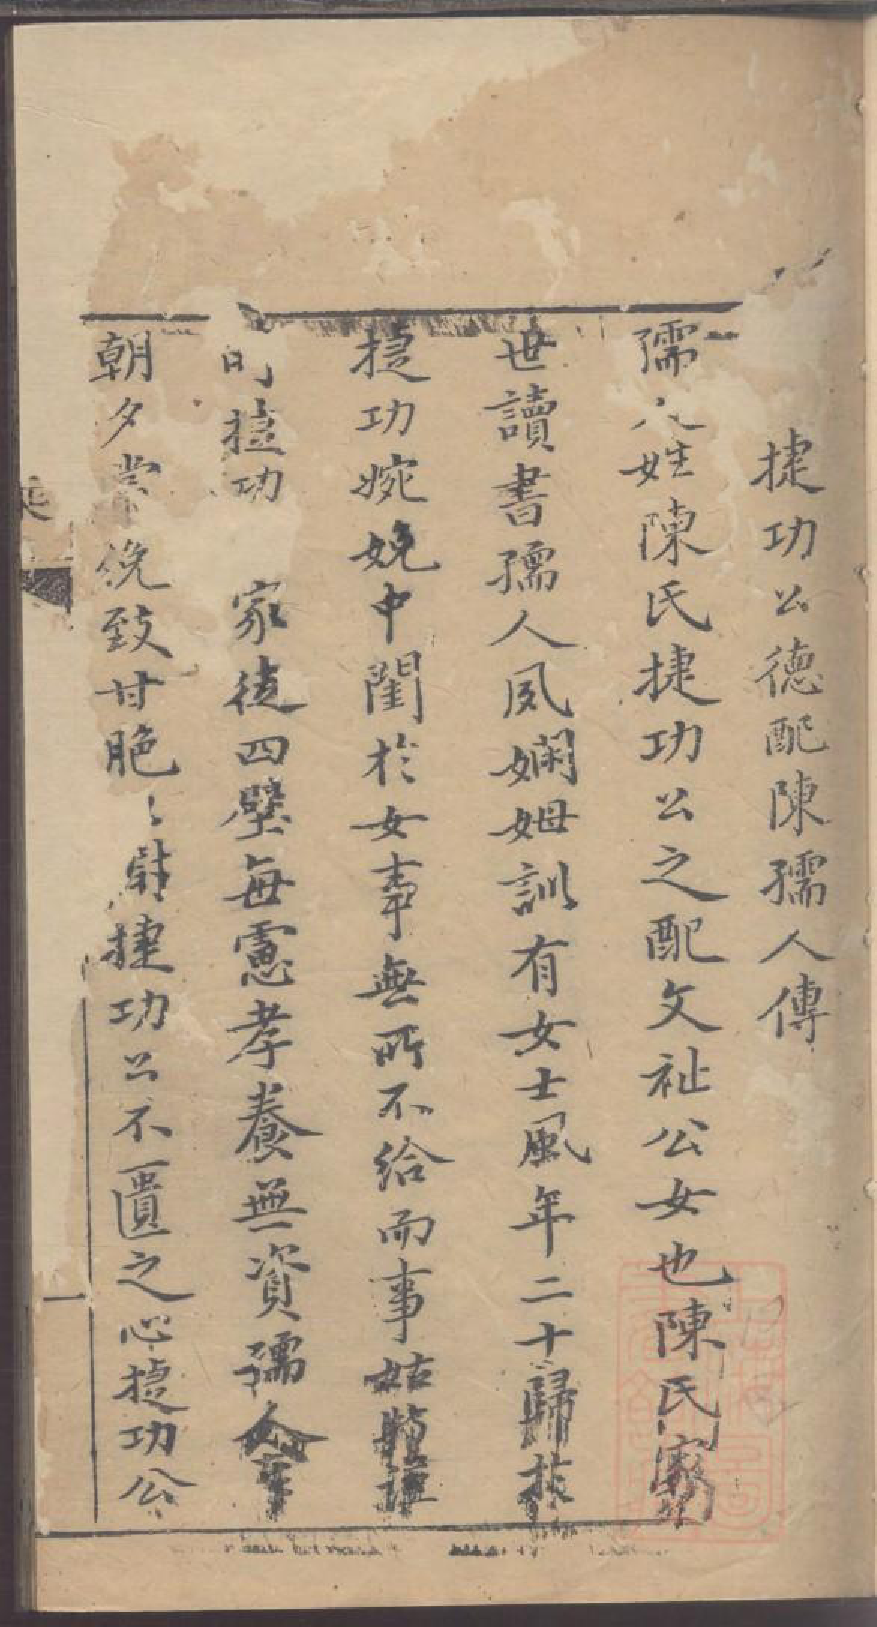 捷功公德配陳孺人傳
孺人姓陳氏捷功公之配文祉公女也陳氏
世讀書孺人夙嫻姆訓有女士風年二十歸於
捷功婉娩中閨於女事無所不給而事姑
时捷功 家徒四壁每慮孝養無資孺人
朝夕黽俛致甘脆以慰捷功公不匱之心捷功公